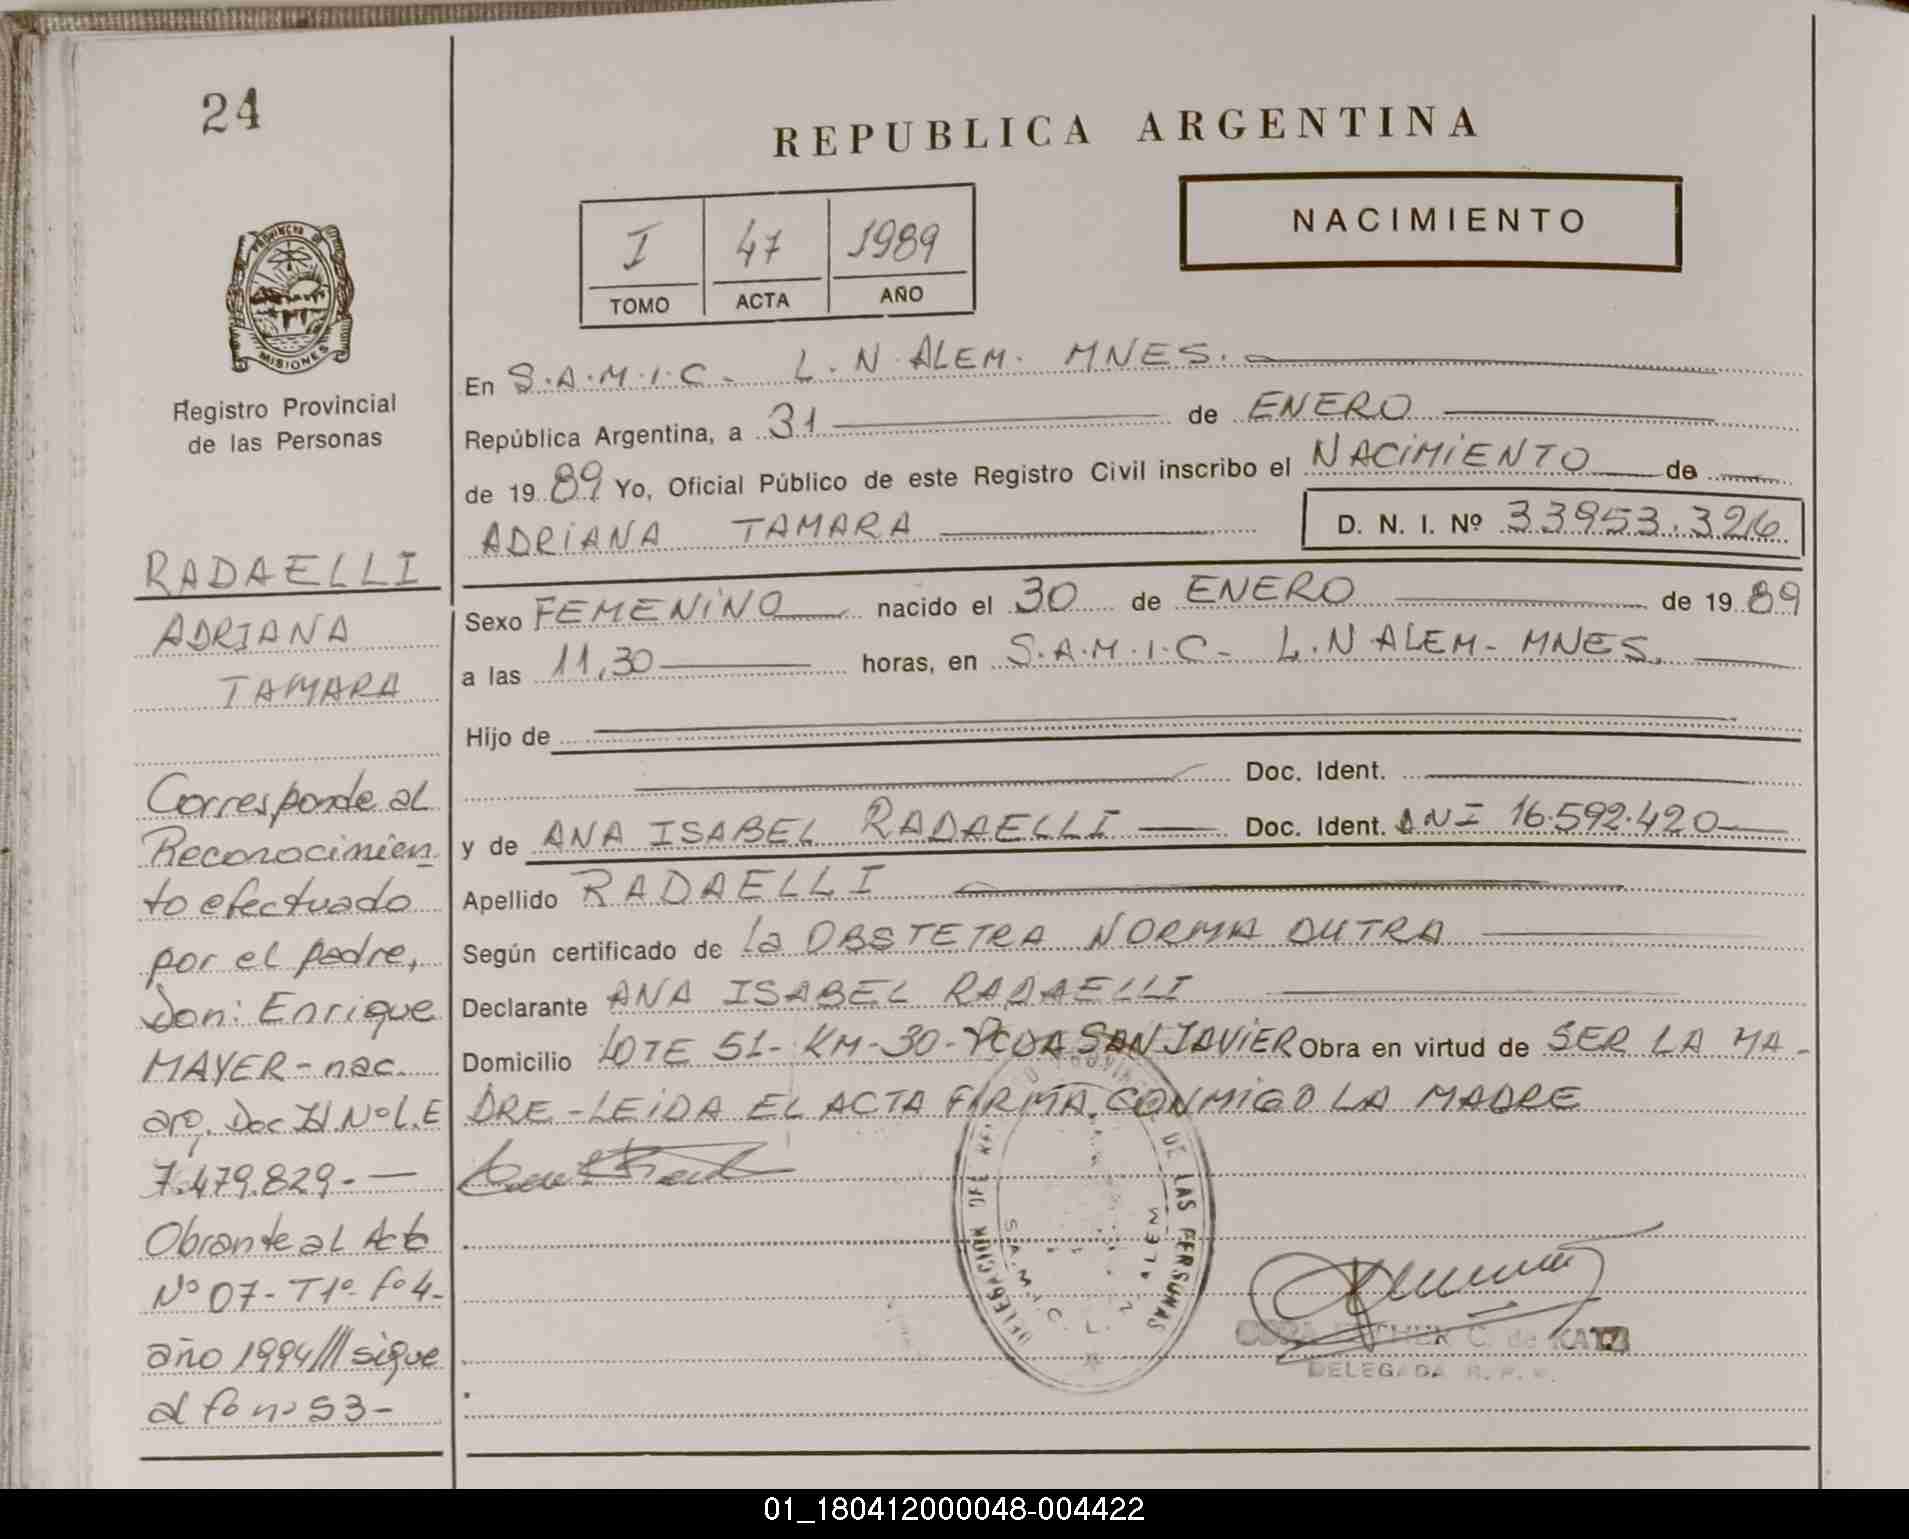 24
REPUBLICA ARGENTINA
NACIMIENTO
I 47 1989
TOMO ACTA AÑO
PROVINCIA DE
MISIONES
Registro Provincial
de las Personas
RADAELLI
ADRIANA
TAMARA
Corresponde al
Reconocimien
to efectuado
por el padre,
Don: Enrique
MAYER - nac.
arg. Doc Id. Nº L.E
7.479.829.-
Obrante al Acta
Nº 07 - T1º - fº 4-
año 1994/// sigue
al fº nº 53-
En S.A.M.I.C. - L.N. ALEM. MNES.
República Argentina, a 31 de ENERO
de 1989 Yo, Oficial Público de este Registro Civil inscribo el NACIMIENTO de
ADRIANA TAMARA D. N. I. Nº 33953.326
Sexo FEMENINO nacido el 30 de ENERO de 1989
a las 11,30 horas, en S.A.M.I.C - L.N ALEM - MNES.
Hijo de
Doc. Ident.
y de ANA ISABEL RADAELLI Doc. Ident. DNI 16.592.420
Apellido RADAELLI
Según certificado de la OBSTETRA NORMA DUTRA
Declarante ANA ISABEL RADAELLI
Domicilio LOTE 51 - KM - 30 - PCDA SAN JAVIER Obra en virtud de SER LA MA-
DRE - LEIDA EL ACTA FIRMA CONMIGO LA MADRE
DELEGACION DEL DE LAS PERSONAS
S.A.M.I.C. L. N. ALEM
C. de KATZ
DELEGADA R. P. P.
01_180412000048-004422